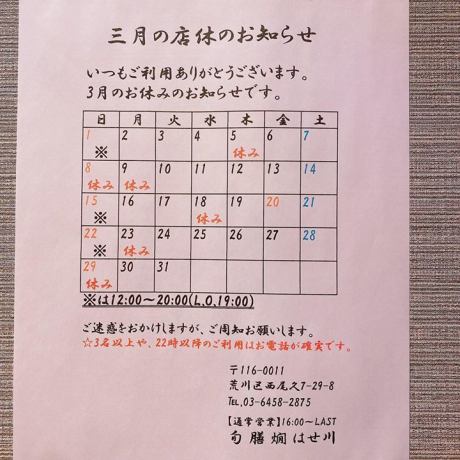 三月の店休のお知らせ
いつもご利用ありがとうございます。
3月のお休みのお知らせです。
日 月 火 水 木 金 土
1 2 3 4 5 6 7
※ 休み
8 9 10 11 12 13 14
休み 休み
15 16 17 18 19 20 21
※ 休み
22 23 24 25 26 27 28
※ 休み
29 30 31
休み
※は12:00～20:00(L,O,19:00)
ご迷惑をおかけしますが、ご周知お願いします。
☆3名以上や、22時以降のご利用はお電話が確実です。
〒116-0011
荒川区西尾久7-29-8
TEL,03-6458-2875
【通常営業】16:00～LAST
旬膳燗はせ川